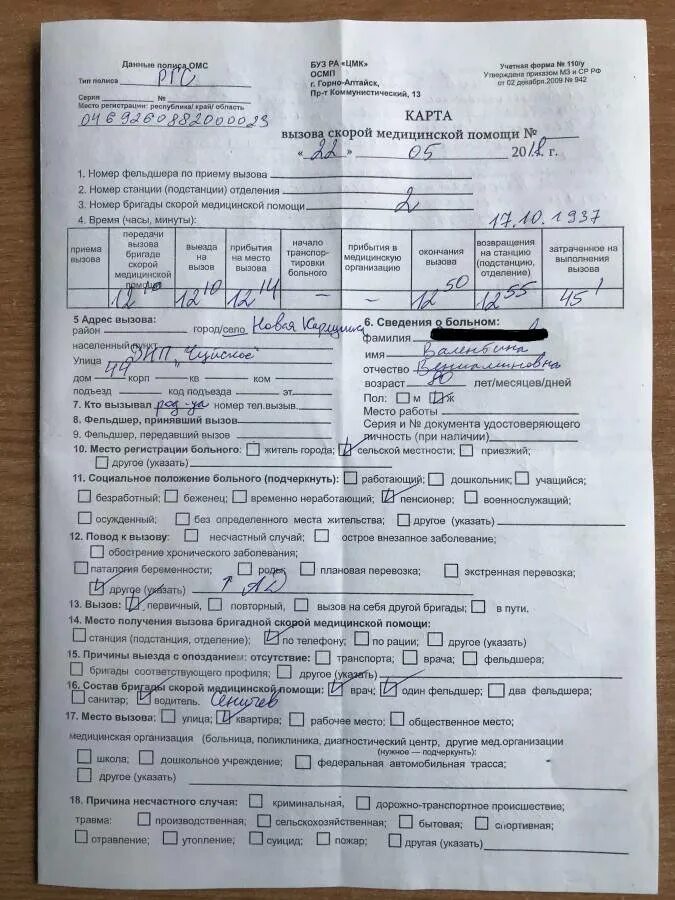 Данные полиса ОМС
Тип полиса РГС
Серия № 
Место регистрации: республика/ край/ область
0469260882000023
БУЗ РА «ЦМК»
ОСМП
г. Горно-Алтайск,
Пр-т Коммунистический, 13
Учетная форма № 110/у
Утверждена приказом МЗ и СР РФ
от 02 декабря.2009 № 942
КАРТА
вызова скорой медицинской помощи №
«22» 05 2018 г.
1. Номер фельдшера по приему вызова
2. Номер станции (подстанции) отделения
3. Номер бригады скорой медицинской помощи 2
4. Время (часы, минуты): 17.10.1937
приема вызова
передачи вызова бригаде скорой медицинской помощи
выезда на вызов
прибытия на место вызова
начало транспортировки больного
прибытия в медицинскую организацию
окончания вызова
возвращения на станцию (подстанцию, отделение)
затраченное на выполнения вызова
12 10 12 10 12 14 – – 12 50 12 55 45'
5 Адрес вызова:
район город/село Новая
населенный пункт
Улица ДНП "Чуйское"
дом 44 корп кв ком
подъезд код подъезда эт.
7. Кто вызывал род-ца номер тел.вызыв.
8. Фельдшер, принявший вызов
9. Фельдшер, передавший вызов
6. Сведения о больном:
фамилия
имя Валентина
отчество Вениаминовна
возраст 80 лет/месяцев/дней
Пол: м ж
Место работы
Серия и № документа удостоверяющего
личность (при наличии)
10. Место регистрации больного: житель города; сельской местности; приезжий;
другое (указать)
11. Социальное положение больного (подчеркнуть): работающий; дошкольник; учащийся;
безработный; беженец; временно неработающий; пенсионер; военнослужащий;
осужденный; без определенного места жительства; другое (указать)
12. Повод к вызову: несчастный случай; острое внезапное заболевание;
обострение хронического заболевания;
паталогия беременности; роды; плановая перевозка; экстренная перевозка;
другое (указать) ↑ АД
13. Вызов: первичный, повторный, вызов на себя другой бригады; в пути.
14. Место получения вызова бригадной скорой медицинской помощи:
станция (подстанция, отделение); по телефону; по рации; другое (указать)
15. Причины выезда с опозданием: отсутствие: транспорта; врача; фельдшера;
бригады соответствующего профиля; другое (указать)
16. Состав бригады скорой медицинской помощи: врач; один фельдшер; два фельдшера;
санитар; водитель.
17. Место вызова: улица; квартира; рабочее место; общественное место;
медицинская организация (больница, поликлиника, диагностический центр, другие мед.организации
(нужное — подчеркнуть):
школа; дошкольное учреждение; федеральная автомобильная трасса;
другое (указать)
18. Причина несчастного случая: криминальная, дорожно-транспортное происшествие;
травма: производственная; сельскохозяйственная; бытовая; спортивная;
отравление; утопление; суицид; пожар; другая (указать)